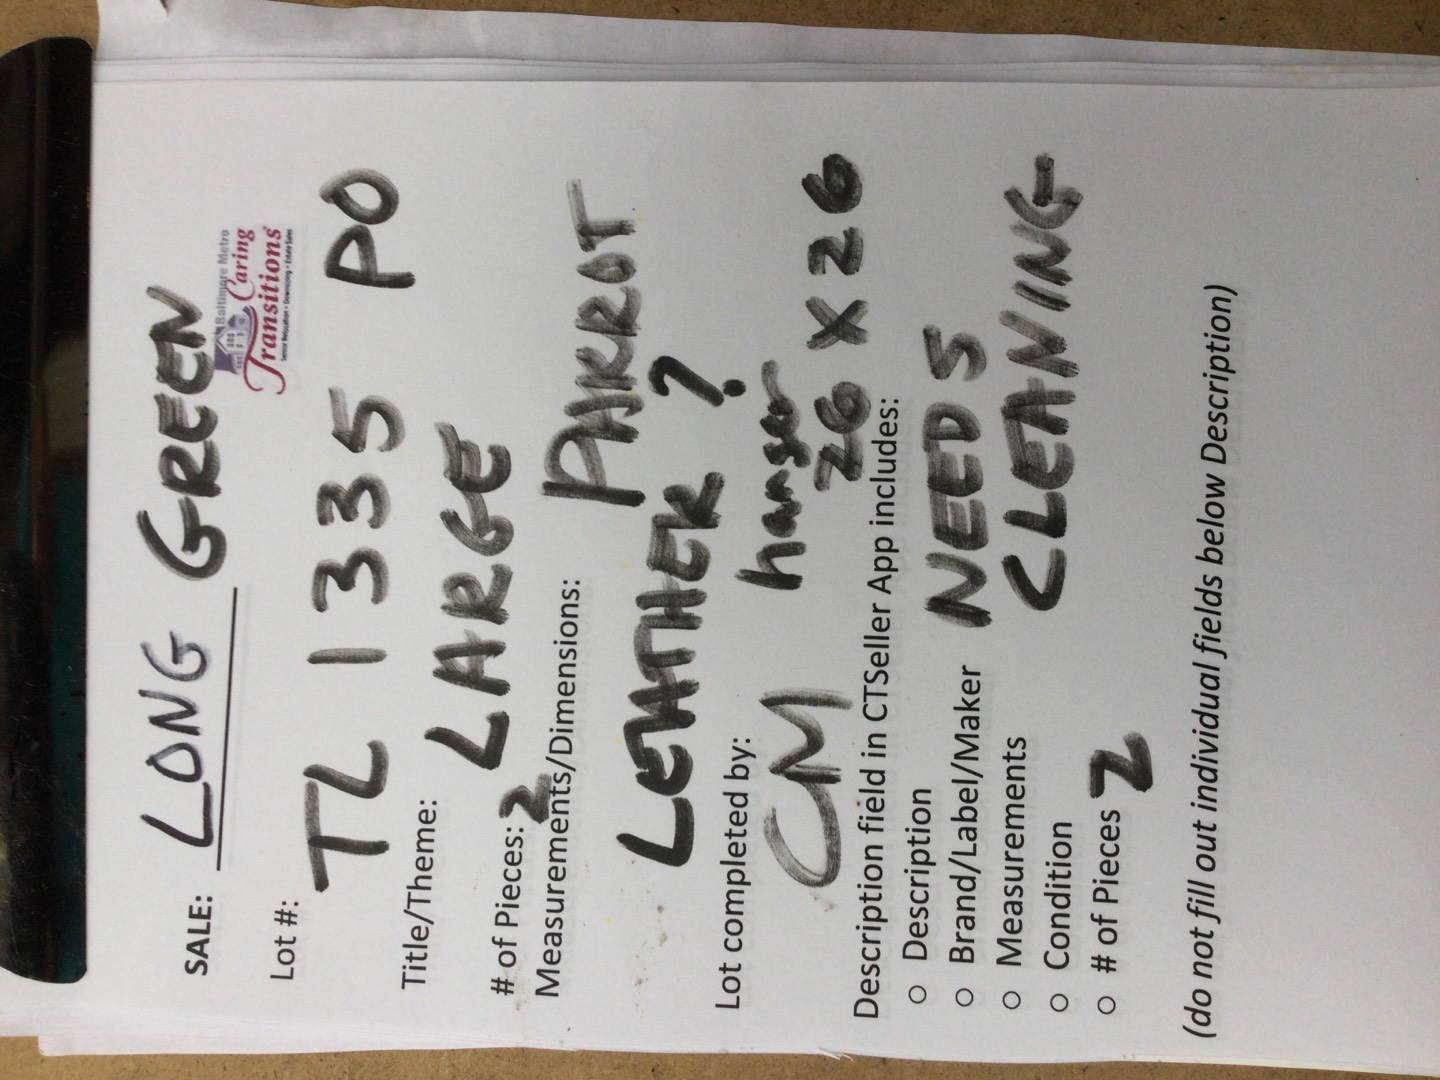 SALE: LONG GREEN
Baltimore Metro
Caring
Transitions
Senior Relocation • Downsizing • Estate Sales
Lot #:
TL 1335 PO
Title/Theme: LARGE
# of Pieces: 2 PARROT
Measurements/Dimensions:
LEATHER ?
Lot completed by: hanger
CM 26 X 26
Description field in CTSeller App includes:
○ Description NEEDS
○ Brand/Label/Maker CLEANING
○ Measurements
○ Condition
○ # of Pieces 2
(do not fill out individual fields below Description)